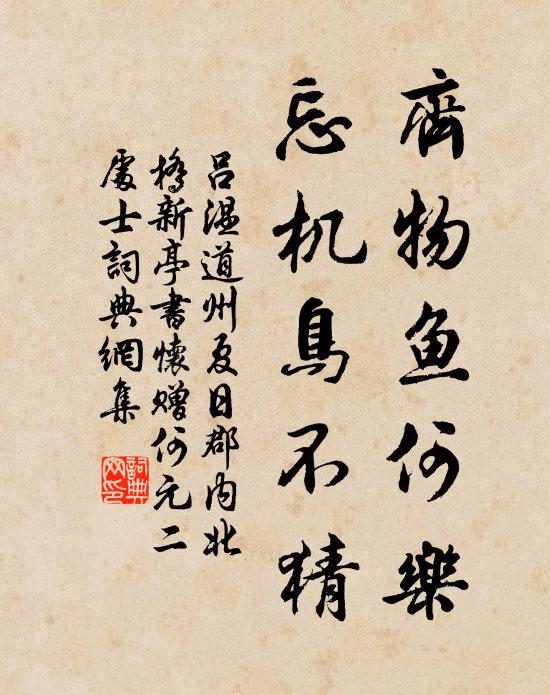 齊物鱼何樂
忘机鳥不猜
呂温道州夏日郡内北
橋新亭書懷贈何元二
處士詞典網集
詞典
网印